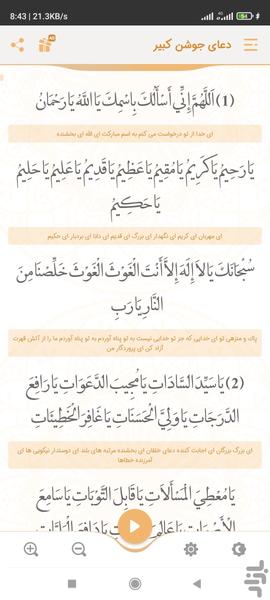 8:43 | 21.3KB/s
دعای جوشن کبیر
(1) اَللَّهُمَّ إِنِّي أَسْأَلُكَ بِاسْمِكَ يَا اللَّهُ يَا رَحْمَانُ
ای خدا از تو درخواست می کنم به اسم مبارکت ای الله ای بخشنده
يَا رَحِيمُ يَا كَرِيمُ يَا مُقِيمُ يَا عَظِيمُ يَا قَدِيمُ يَا عَلِيمُ يَا حَلِيمُ
يَا حَكِيمُ
ای مهربان ای کریم ای نگهدار ای بزرگ ای قدیم ای دانا ای بردبار ای حکیم
سُبْحَانَكَ يَا لاَ إِلَهَ إِلاَّ أَنْتَ الْغَوْثَ الْغَوْثَ خَلِّصْنَا مِنَ
النَّارِ يَا رَبِ
پاک و منزهی تو ای خدایی که جز تو خدایی نیست به تو پناه آوردم به تو پناه آوردم ما را از آتش قهرت
آزاد کن ای پروردگار من
(2) يَا سَيِّدَ السَّادَاتِ يَا مُجِيبَ الدَّعَوَاتِ يَا رَافِعَ
الدَّرَجَاتِ يَا وَلِيَّ الْحَسَنَاتِ يَا غَافِرَ الْخَطِيئَاتِ
ای بزرگ بزرگان ای اجابت کننده دعای خلقان ای بخشنده مرتبه های بلند ای دوستدار نیکویی ها ای
آمرزنده خطاها
يَا مُعْطِيَ الْمَسْأَلاَتِ يَا قَابِلَ التَّوْبَاتِ يَا سَامِعَ
بازار